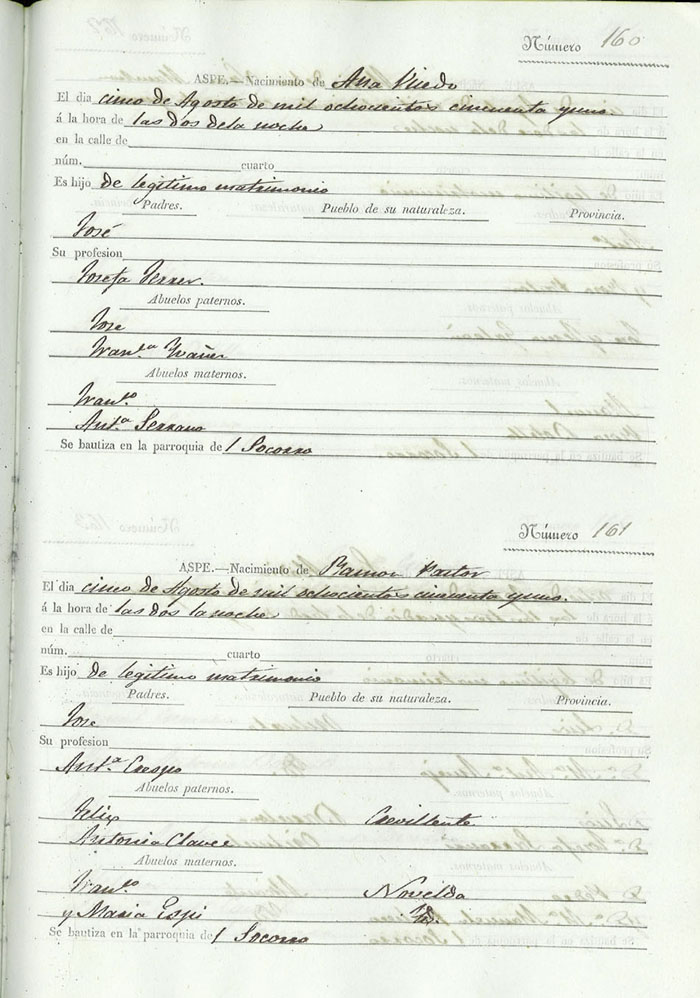 Número 160
ASPE.—Nacimiento de Ana
El dia cinco de Agosto de mil ochocientos cincuenta y uno.
á la hora de las dos dela noche
en la calle de
núm. cuarto
Es hijo de legitimo matrimonio
Padres. Pueblo de su naturaleza. Provincia.
José
Su profesion
Josefa Ferrer.
Abuelos paternos.
Jose
Fran.ca
Abuelos maternos.
Fran.co
Ant.a Serrano
Se bautiza en la parroquia de l Socorro
Número 161
ASPE.—Nacimiento de Ramon Pastor
El dia cinco de Agosto de mil ochocientos cincuenta y uno.
á la hora de las dos la noche
en la calle de
núm. cuarto
Es hijo de legitimo matrimonio
Padres. Pueblo de su naturaleza. Provincia.
Jose
Su profesion
Ant.a Crespo
Abuelos paternos.
Felix Crevillente
Antonia Claver
Abuelos maternos.
Fran.co Novelda
y Maria Espi id.
Se bautiza en la parroquia de l Socorro